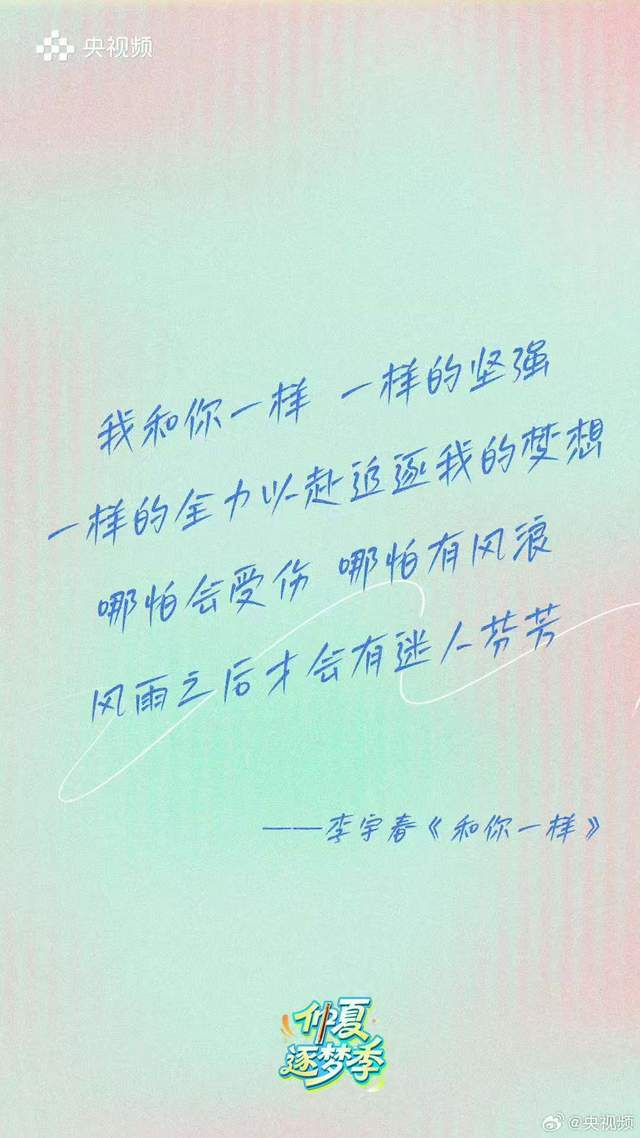 央视频
我和你一样 一样的坚强
一样的全力以赴追逐我的梦想
哪怕会受伤 哪怕有风浪
风雨之后才会有迷人芬芳
——李宇春《和你一样》
仲夏
逐梦季
@央视频